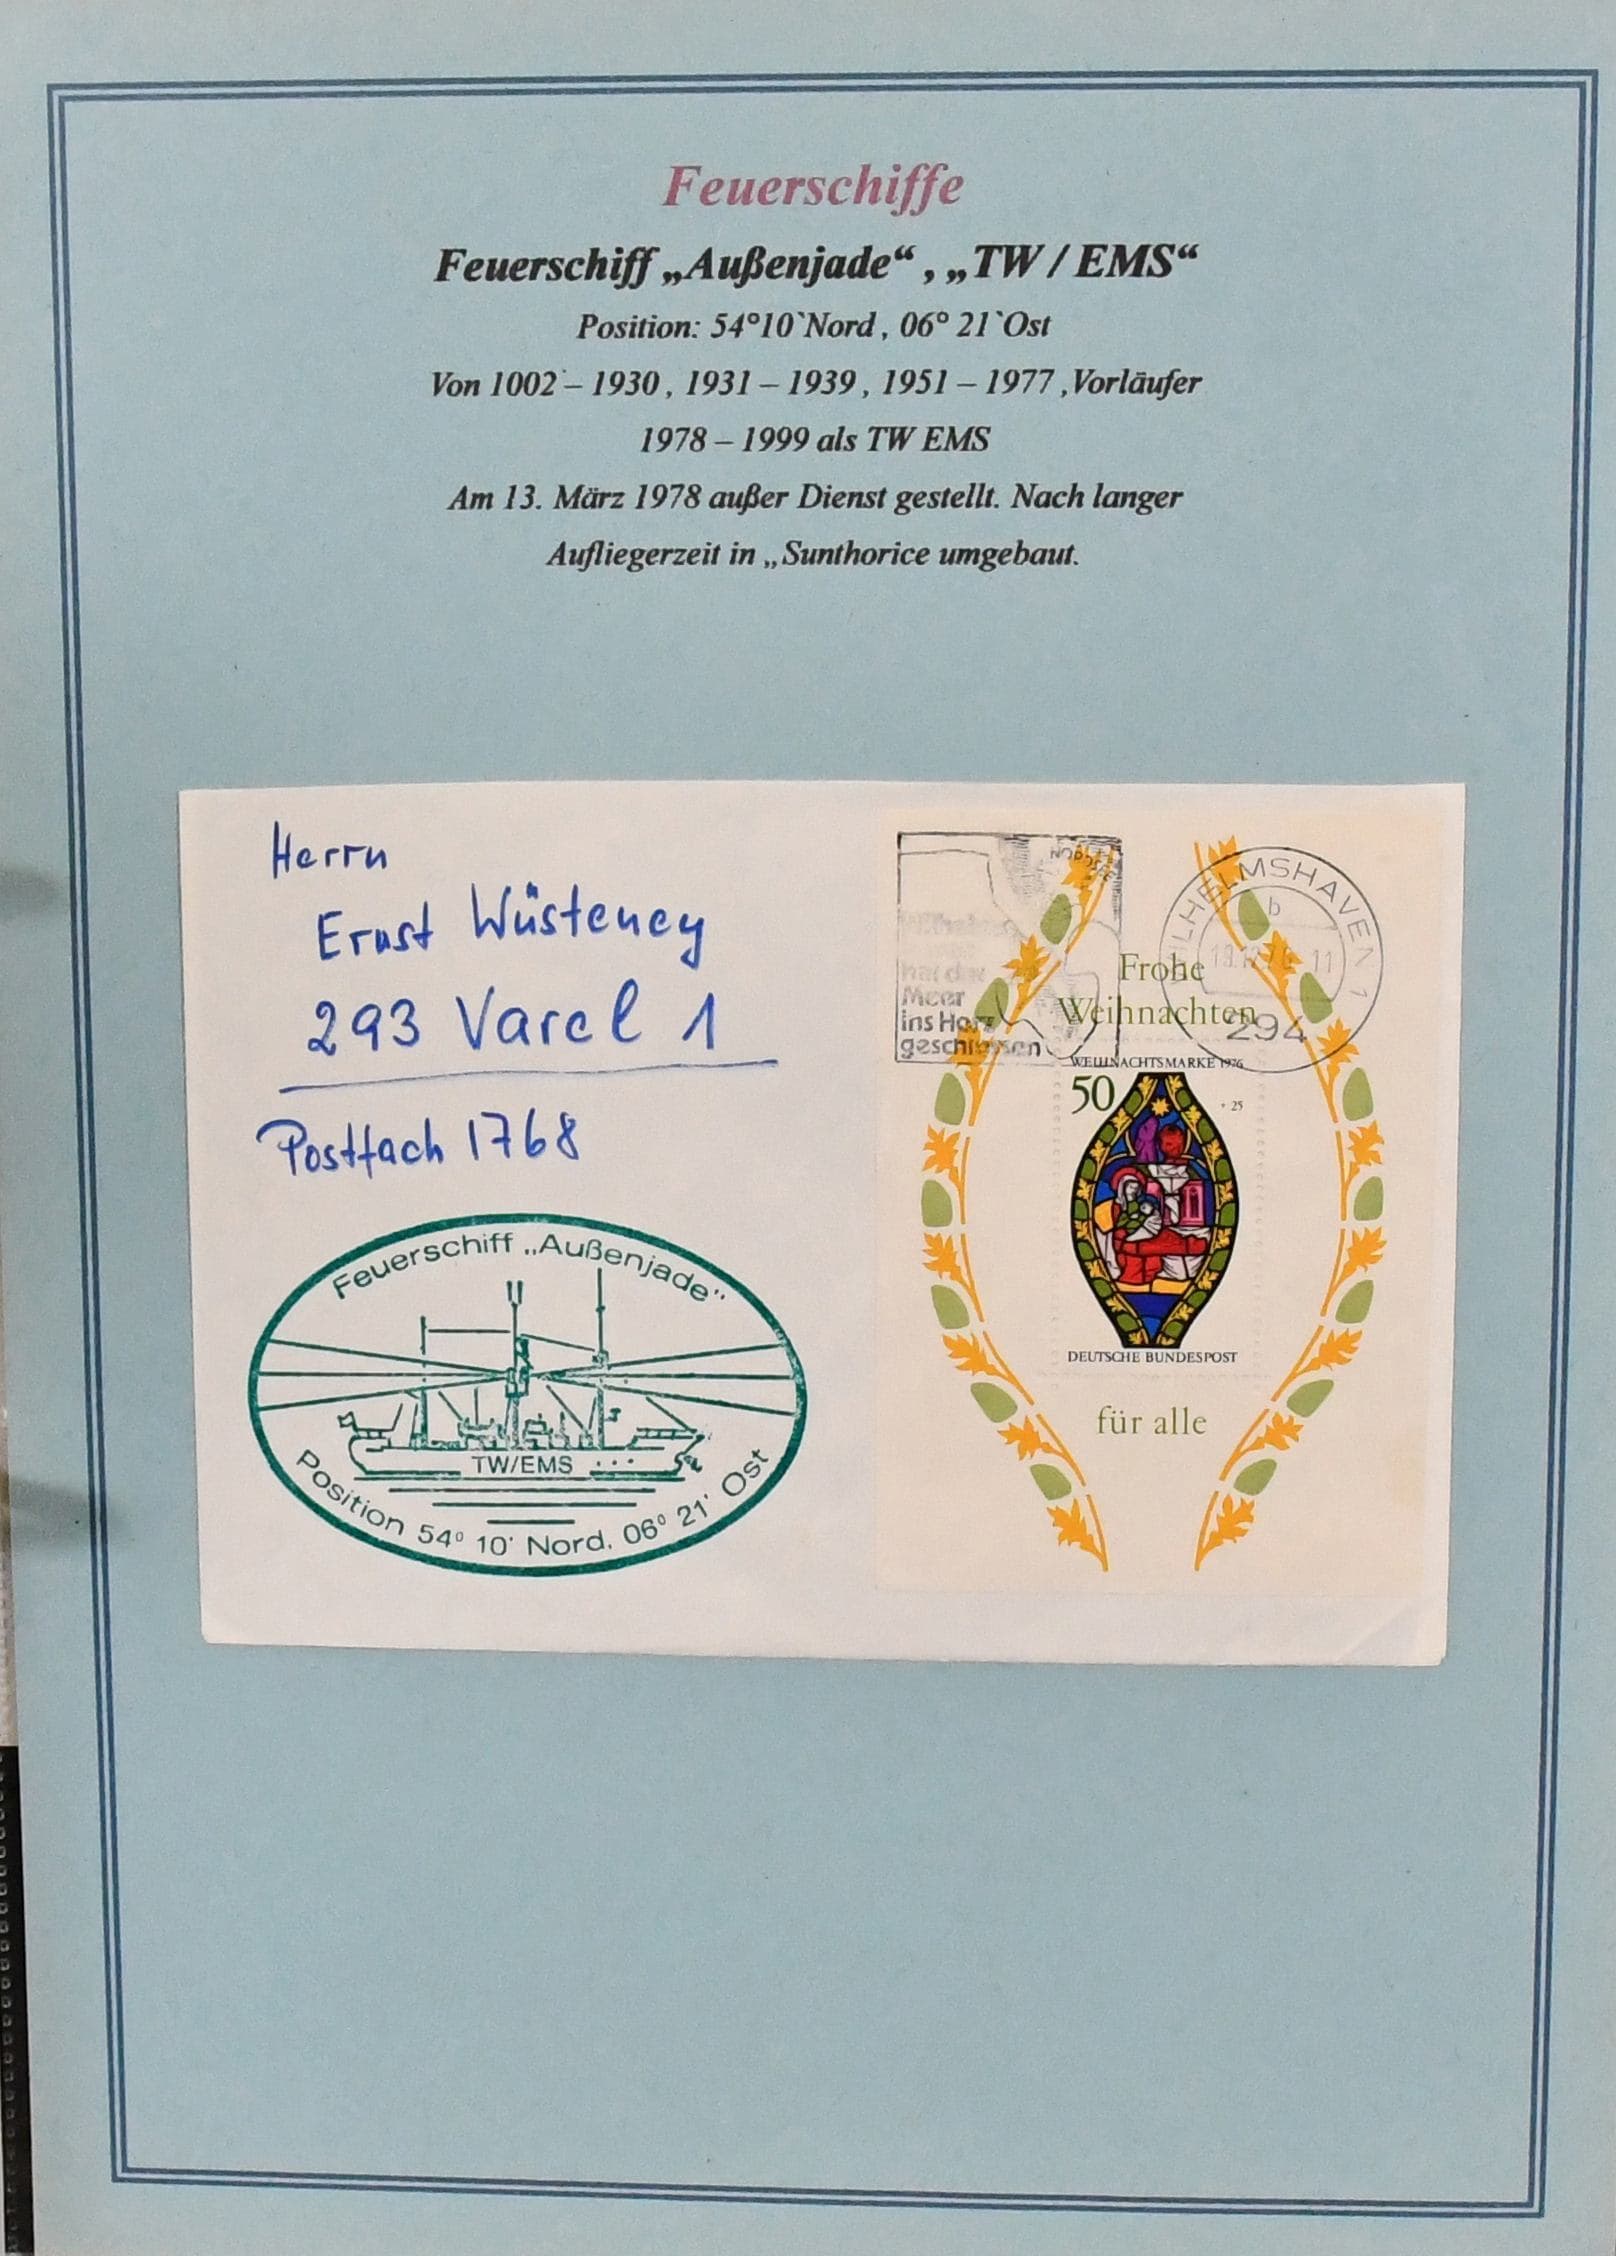 Feuerschiffe
Feuerschiff „Außenjade“ , „TW / EMS“
Position: 54°10`Nord , 06° 21`Ost
Von 1002 – 1930 , 1931 – 1939 , 1951 – 1977 , Vorläufer
1978 – 1999 als TW EMS
Am 13. März 1978 außer Dienst gestellt. Nach langer
Aufliegerzeit in „Sunthorice umgebaut.
Herrn
Ernst Wüsteney
293 Varel 1
Postfach 1768
Feuerschiff „Außenjade”
TW/EMS
Position 54° 10' Nord, 06° 21' Ost
NORDSEE
hat der
Meer
ins Herz
geschlossen
WILHELMSHAVEN 1
b
294
Frohe
Weihnachten
WEIHNACHTSMARKE 1976
50
+ 25
DEUTSCHE BUNDESPOST
für alle